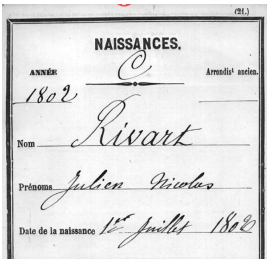 (21.)
NAISSANCES.
C
ANNÉE Arrondisᵗ ancien.
1802
Nom Rivart
Prénoms Julien Nicolas
Date de la naissance 1er Juillet 1802